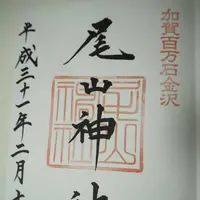 加賀百万石金沢
尾山神社
平成三十一年二月十